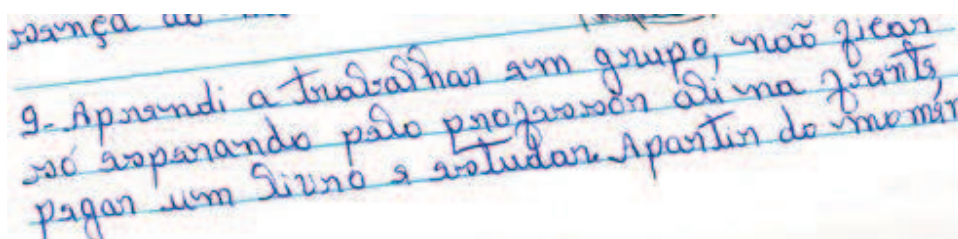 9- Aprendi a trabalhar em grupo, não ficar
só esperando pelo professor ali na frente,
pegar um livro e estudar. Apartir do momen